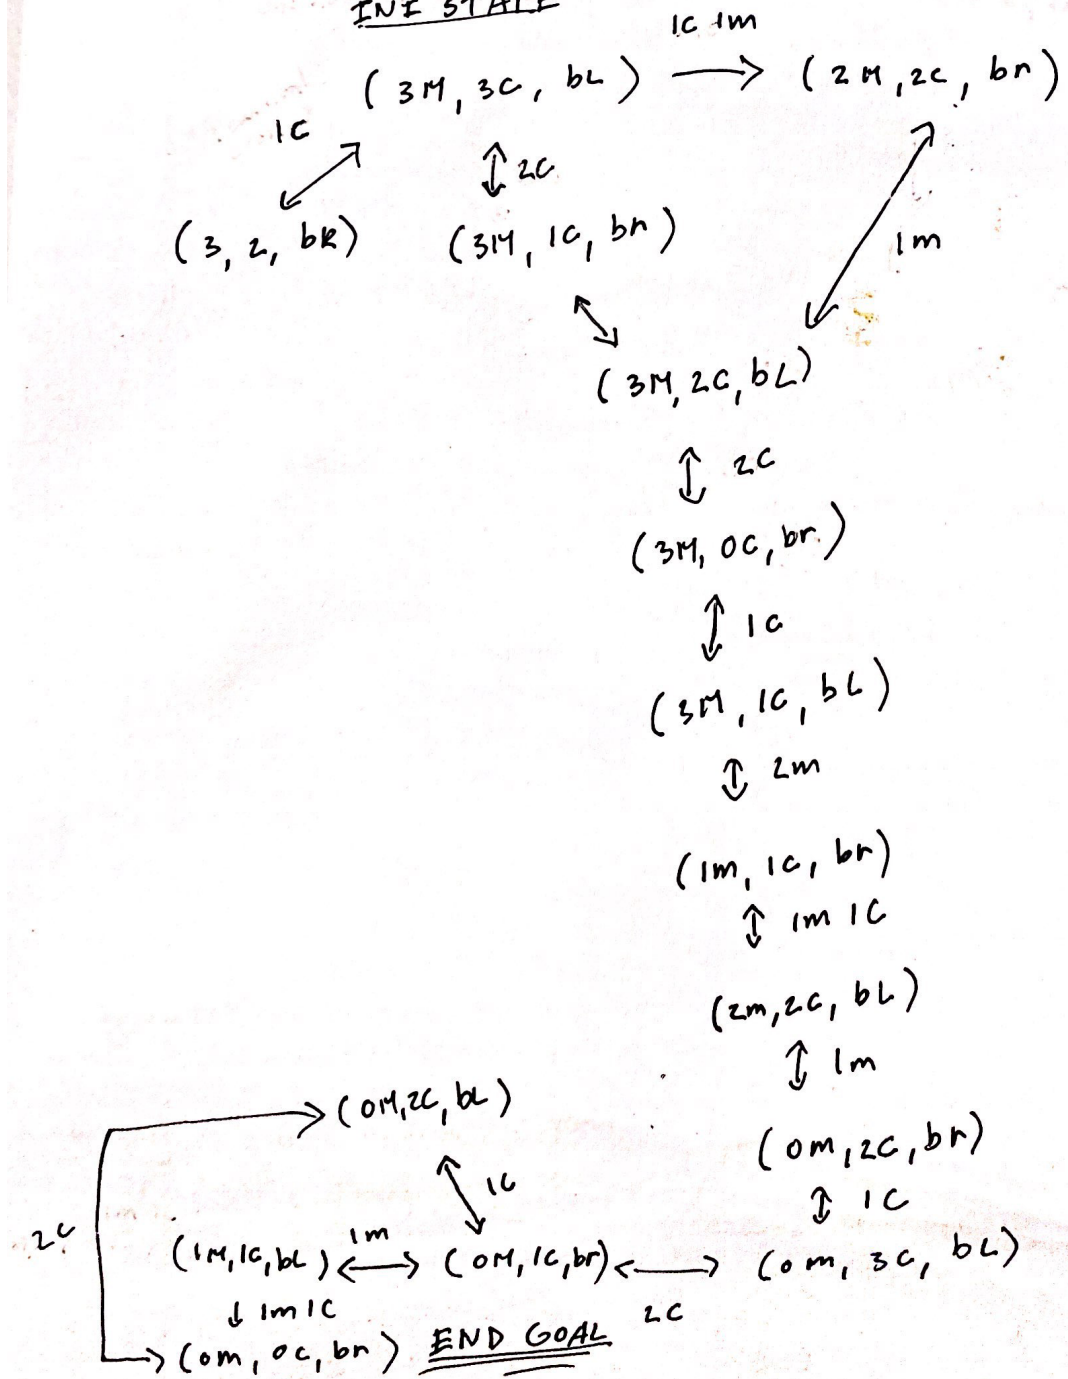 INI STATE
1C 1m
(3M, 3C, bL) → (2M, 2C, br)
1C
2C
(3, 2, bR) (3M, 1C, br)
1m
(3M, 2C, bL)
2C
(3M, 0C, br)
1C
(3M, 1C, bL)
2m
(1m, 1C, br)
1m 1C
(2m, 2C, bL)
1m
(0M, 2C, bL)
(0m, 2C, br)
1C
1C
2C
1m
(1M, 1C, bL) ↔ (0M, 1C, br) ↔ (0m, 3C, bL)
↓ 1m 1C
2C
→ (0m, 0C, br) END GOAL